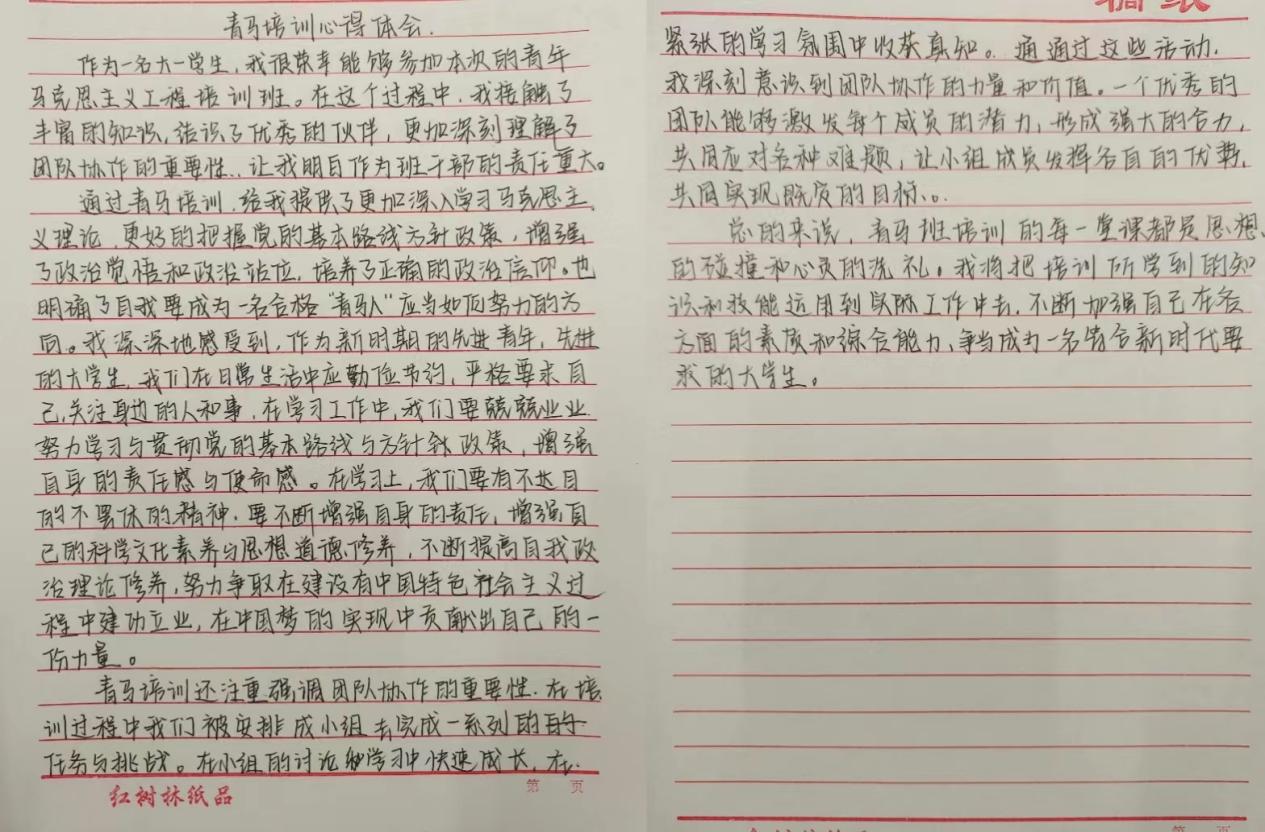 青马培训心得体会.
作为一名大一学生，我很荣幸能够参加本次的青年
马克思主义工程培训班。在这个过程中，我接触了
丰富的知识，结识了优秀的伙伴，更加深刻理解了
团队协作的重要性..让我明白作为班干部的责任重大。
通过青马培训，给我提供了更加深入学习马克思主
义理论，更好的把握党的基本路线方针政策，增强
了政治觉悟和政治站位，培养了正确的政治信仰。也
明确了自我要成为一名合格“青马人”应当如何努力的方
向。我深深地感受到，作为新时期的先进青年，先进
的大学生，我们在日常生活中应勤俭节约，严格要求自
己，关注身边的人和事，在学习工作中，我们要兢兢业业
努力学习与贯彻党的基本路线与方针到政策，增强
自身的责任感与使命感。在学习上，我们要有不达目
的不罢休的精神，要不断增强自身的责任，增强自
己的科学文化素养与思想道德修养，不断提高自我政
治理论修养，努力争取在建设有中国特色社会主义过
程中建功立业，在中国梦的实现中贡献出自己的一
份力量。
青马培训还注重强调团队协作的重要性，在培
训过程中我们被安排成小组去完成一系列的
任务与挑战。在小组的讨论和学习中快速成长，在
红树林纸品
第 页
稿纸
紧张的学习氛围中收获真知。通通过这些活动，
我深刻意识到团队协作的力量和价值。一个优秀的
团队能够激发每个成员的潜力，形成强大的合力，
共同应对各种难题，让小组成员发挥各自的优势，
共同实现既定的目标。
总的来说，青马班培训的每一堂课都是思想
的碰撞和心灵的洗礼。我将把培训所学到的知
识和技能运用到实际工作中去，不断加强自己在各
方面的素质和综合能力，争当成为一名符合新时代要
求的大学生。
第 页